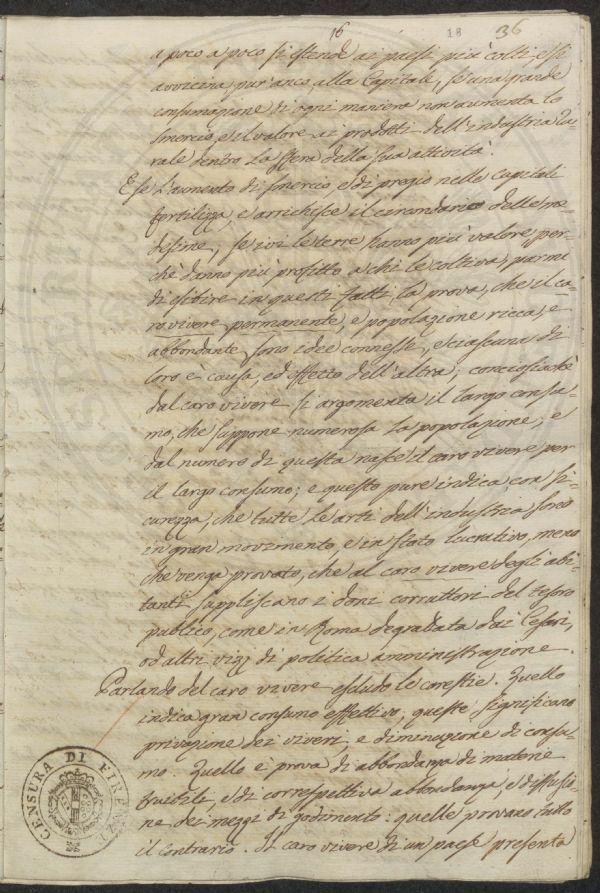 16 18 36
a poco a poco si estende ai paesi più colti, e si
avvicina pur'anco alla Capitale, se una grande
consumazione di ogni maniera non aumenta lo
smercio, e il valore ai prodotti dell'industria ru-
rale dentro la sfera della sua attività.
E se l'aumento di smercio, e di pregio nelle Capitali
fertilizza, e arrichisce il circondario delle me-
desime, se ivi le terre hanno più valore, per-
chè danno più profitto a chi le coltiva, parmi
di esibire in questi fatti la prova, che il ca-
ro vivere permanente, e popolazione ricca, e
abbondante sono idee connesse, e ciascuna di
loro è causa, ed effetto dell'altra; conciosiachè
dal caro vivere si argomenta il largo consu-
mo, che suppone numerosa la popolazione; e
dal numero di questa nasce il caro vivere per
il largo consumo; e questo pure indica con si-
curezza, che tutte le arti dell'industria sono
in gran movimento, e in stato lucrativo, meno
che venga provato, che al caro vivere degli abi-
tanti suppliscano i doni corruttori del tesoro
publico, come in Roma degradata dai Cesari,
od altri vizj di politica amministrazione.
Parlando del caro vivere escludo le carestie. Quello
indica gran consumo effettivo; queste significano
privazione dei viveri, e diminuzione di consu-
mo. Quello è prova di abbondanza di materie
fruibili, e di correspettiva abbondanza, e diffusio-
ne dei mezzi di godimento: quelle provano tutto
il contrario. Il caro vivere di un paese presenta
CENSURA DI FIRENZE